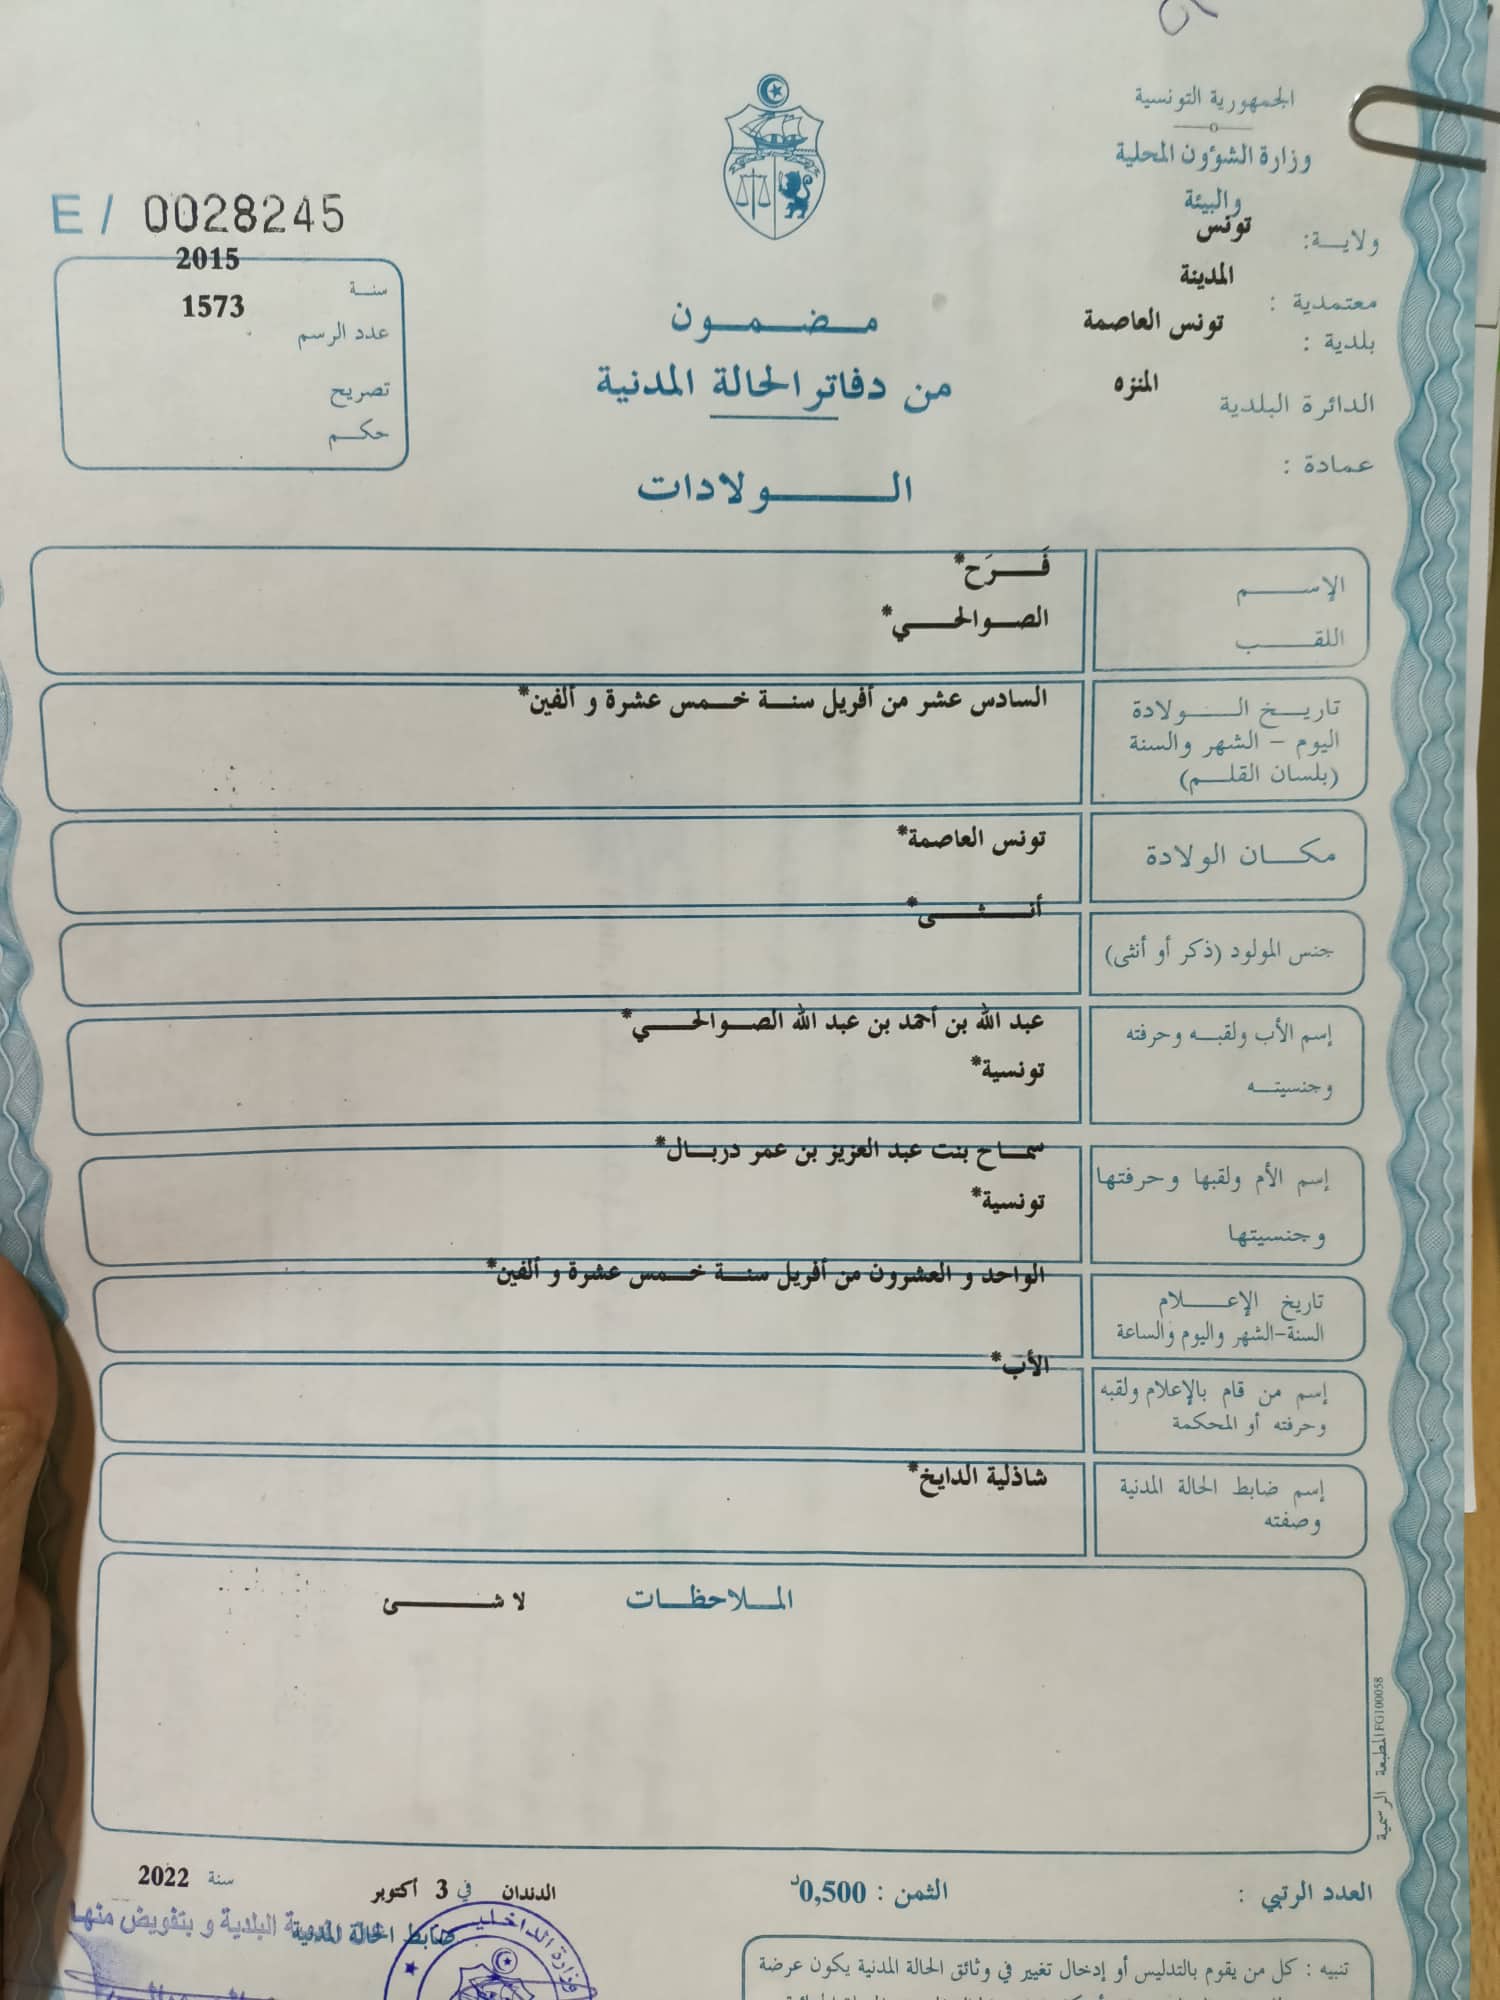 الجمهورية التونسية
وزارة الشؤون المحلية
والبيئة
ولايـــة: تونس
معتمدية : المدينة
بلدية : تونس العاصمة
الدائرة البلدية المنزه
عمادة :
E / 0028245
سنـة 2015
عدد الرسم 1573
تصريح
حكـــم
مـــضـــمـــون
من دفاتر الحالة المدنية
الـــــــولادات
الإســـــــم فَـــــرَح*
اللقــــــب الصـــوالحــــي*
تاريـــخ الـــــولادة السادس عشر من أفريل سنـــة خـــمس عشرة و ألفين*
اليوم – الشهر والسنة
(بلسان القلـــم)
مكـــان الولادة تونس العاصمة*
جنس المولود (ذكر أو أنثى) أنـــــثـــــى*
إسم الأب ولقبـــه وحرفته عبد الله بن أحمد بن عبد الله الصـــوالحــــي*
وجنسيتـــه تونسية*
إسم الأم ولقبها وحرفتها سمـــاح بنت عبد العزيز بن عمر دربـــال*
وجنسيتها تونسية*
تاريخ الإعـــــلام الواحد و العشرون من أفريل سنـــة خـــمس عشرة و ألفين*
السنة-الشهر واليوم والساعة
إسم من قام بالإعلام ولقبه الأب*
وحرفته أو المحكمة
إسم ضابط الحالة المدنية شاذلية الدايخ*
وصفته
المــلاحظــات لا شـــــئ
المطبعة الرسمية FG100058
العدد الرتبي :
الثمن : 0,500د
الدندان في 3 أكتوبر سنة 2022
ضابط الحالة المدنية
البلدية و بتفويض منها
وزارة الداخلية
تنبيه : كل من يقوم بالتدليس أو إدخال تغيير في وثائق الحالة المدنية يكون عرضة